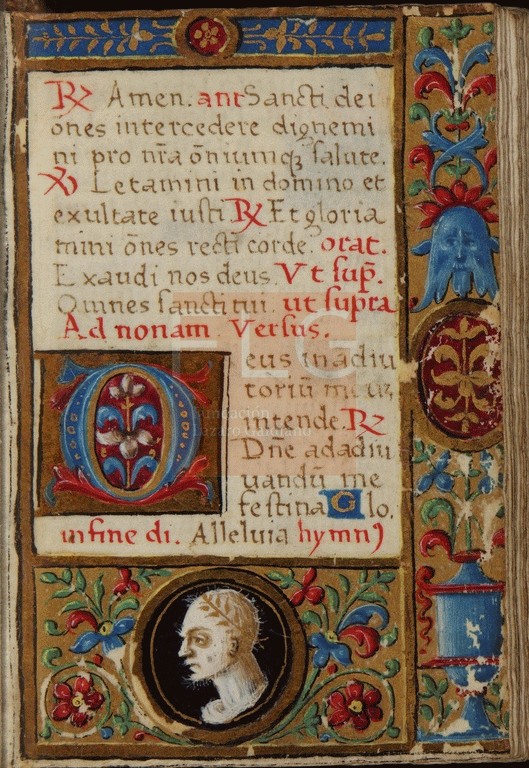 R Amen. ant Sancti dei
o̅nes intercedere dignemi
ni pro nr̅a o̅niumqꝫ salute.
V Letamini in domino et
exultate iusti R Et gloria
mini o̅nes recti corde. orat.
Exaudi nos deus. Vt sup̅.
Omnes sancti tui. ut supra
Ad nonam. Versus.
Deus in adiu
toriu̅ meuꝫ
intende. R
Dn̅e ad adiu
uandu̅ me
festina Glo.
in fine di. Alleluia hymn⁹
FLG
Fundación
Lázaro Galdiano